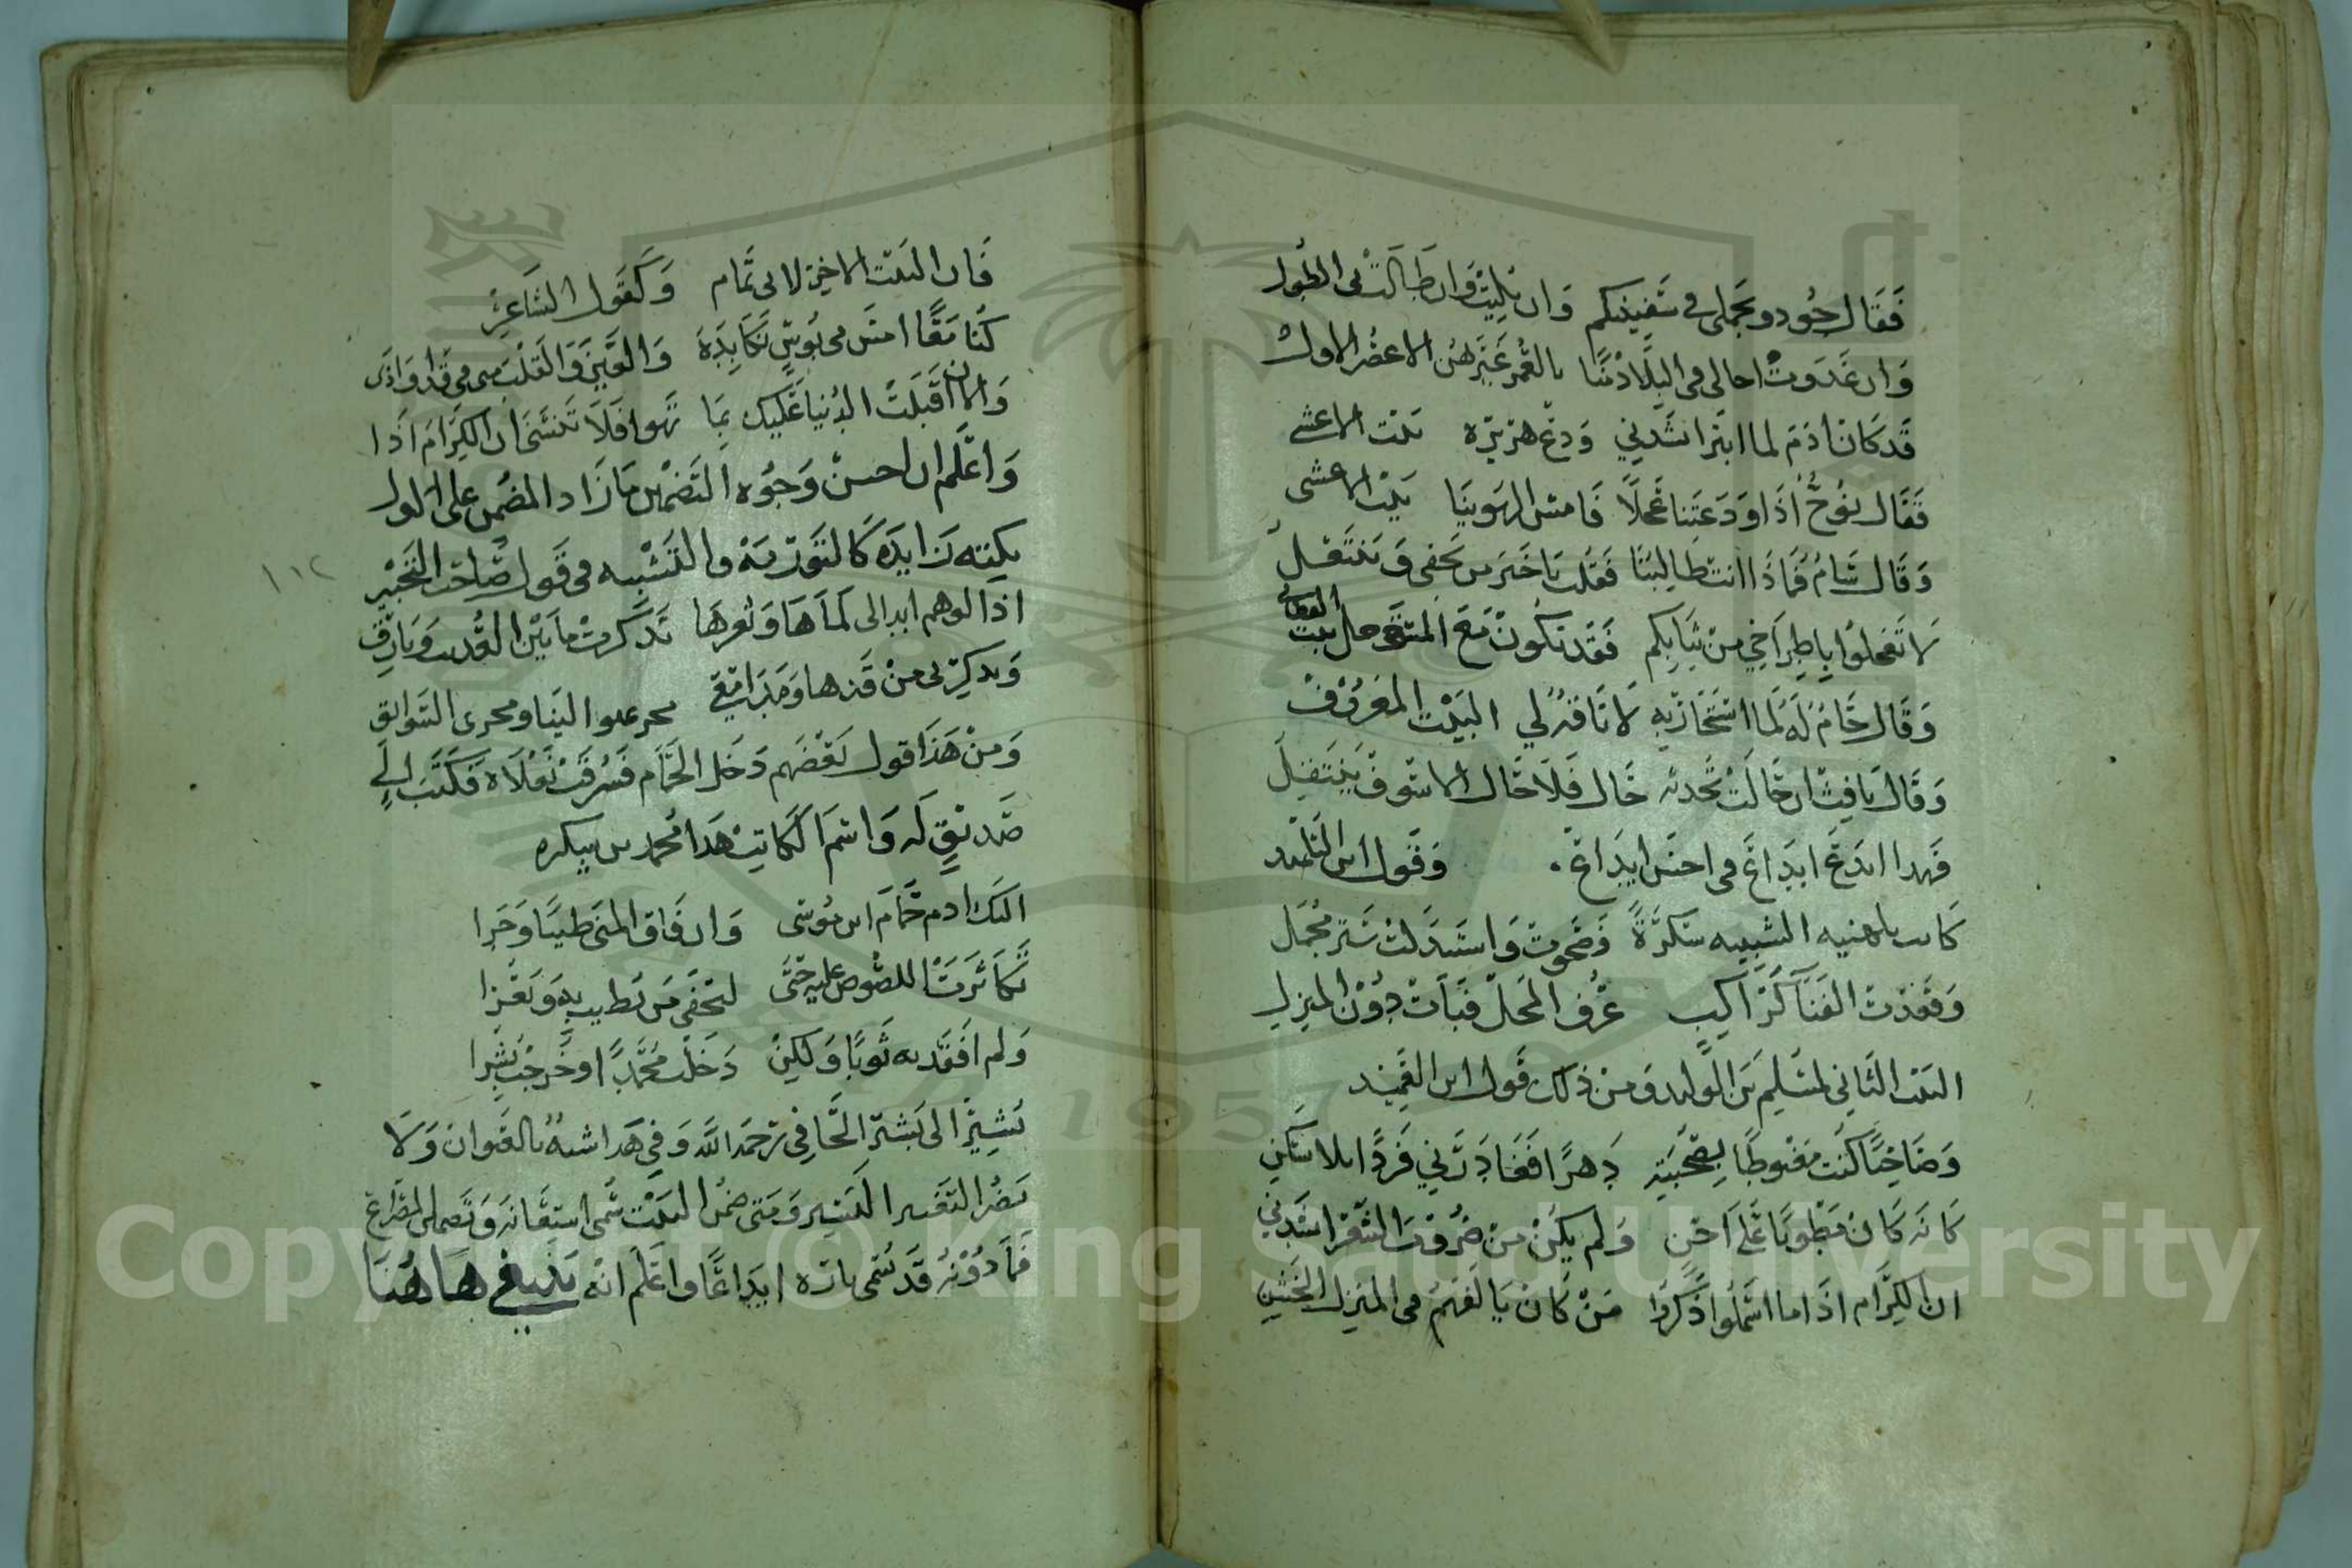 فَقَال جُودو بحملى فى سَفِينتكم وَان بَلِيَتْ وَان طَالَتْ بى الطول
وَان غَدَوتْ احالى فى البلاد منًا بالعُمر غَيَّرهن الاعصُر الاول
قَد كَان ادَم لما ابتز انشدني وَدِّع هرَيرة بَيْت الاعشى
فَقَال نوُحٌ اذَا وَدعَتنا عَجِلاً فَامش الهوَينَا بَيْت الاعشى
وَقَال سَامُ فَمَاذَا انت طالبُنا فَقُلت يَا خَيرَ من يَحفى وَينتَعِل
لا تَعجلوُا يا طراخي من ثيابكم فَقَد يكُون مَع المستَعجل بيت القطامى
وَقَال حَامُ لَه لَما استَجَارَ به لا نَاقة لي البَيْت المَعرُوفْ
وَقَال يَافِث ان حَالَت بحدثه حَال فَلَا حَال الا سَوفَ يَنتَقِل
فَهدا ابدَع ابدَاع فى احسَن ايدَاع . وَقَول ابن التلميد
كَانت بلهنيه الشبيبه سكرَةً فَصَحوتُ وَاستَبدَلت سَترَ مُجمَل
وَقعَدت الفَنَا كَرَاكِبٍ عَرَف المَحَل فبَات دُوْن المنزل
البَيْت الثَّاني لمسَلِم بَن الوَليد وَمن ذلك قَول ابن العَمِيْد
وَصَاحِبًا كُنت مَغبوطًا بِصُحْبَتِه دَهرًا فَغَادَرَني فَردًا بلا سَكَن
كَانه كَان مَطويًا عَلَى احَنٍ وَلم يكن من ضرُوب الشعر انشَدني
ان الكِرَام اذَا ما اسهَلُوا ذكَروا مَن كَان يَالفهُم فى المنزل الخَشِن
فَان البَيْت الاخير لابى تَمام وَكقَول الشاعِر
كُنا مَعًا امسِ فى بُوسٍ نكَابدهَ وَالعَين وَالقَلب منى فى قَذا وَاذَى
وَالان اقبَلت الدُنيَا عَليك بمَا تهوا فَلَا تَنسَني ان الكِرَام اذَا
وَاعلَم ان احسن وَجُوه التَضمين مَا زَاد المضُمن على الاول
بِنكته زَايده كَالتَورية والتَشبيه فى قَول صَاحب التَحبير
اذا الوهم ابدا لى لمَاهَا وَثغرهَا تَذكرت ما بَين العُذيب وَبَارق
وَيذكِرنى من قَدها وَمَدامعِي مجر عوالينَا ومجرى السَوابق
وَمن هَذَا قول بَعضهم دَخَل الحَمَّام فَسُرقَتْ نَعلَاه فكَتَبَ الي
صَديق لَه وَاسم الكَاتب هَذا مُحمد بن
اليك ادم حَمَام ابن مُوسى وَان فَاق المنَى طيبًا وَحَرا
تكَاثَرت اللصُوص عليه حَتَّى لتحَفى مَن يُطيب به وَيَعْرا
وَلم افقَد به ثَوبًا وَلكِن دَخَلت مُحَمَّدًا وخَرجْت بشرا
يُشِير الى بَشر الحَافي رَحمَه الله وَفي هَذا شبهُ بالعنوان وَلَا
يَضُر التَغيير اليَسِير وَمتى ضمن البَيْت سُمى استِعَانه وَتَضمين المصراع
فمَا دوُنه قَد يُسَمى باره ايدَاعًا وَاعلَم انه ينبغى هَا هُنَا
١١٢